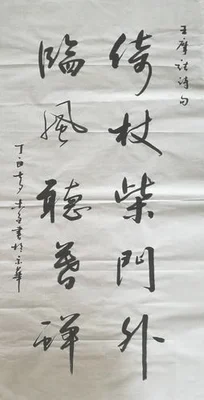 王摩诘诗句
倚杖柴門外
臨風聽暮蟬
丁酉 書於京華